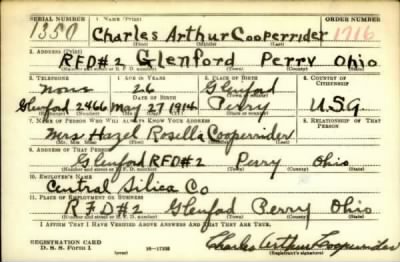 SERIAL NUMBER 1. NAME (Print) ORDER NUMBER
1350 Charles Arthur Cooperrider 1716
(First) (Middle) (Last)
2. ADDRESS (Print)
RFD#2 Glenford Perry Ohio
3. TELEPHONE 4. AGE IN YEARS 5. PLACE OF BIRTH 6. COUNTRY OF CITIZENSHIP
None 26 Glenford
DATE OF BIRTH
Glenford 2466 May 27 1914 Perry U.S.A.
7. NAME OF PERSON WHO WILL ALWAYS KNOW YOUR ADDRESS 8. RELATIONSHIP OF THAT PERSON
Mrs Hazel Rosella Cooperrider
(Mr., Mrs., Miss) (First) (Middle) (Last)
9. ADDRESS OF THAT PERSON
Glenford RFD#2 Perry Ohio
10. EMPLOYER'S NAME
Central Silica Co
11. PLACE OF EMPLOYMENT OR BUSINESS
RFD#2 Glenford Perry Ohio
I AFFIRM THAT I HAVE VERIFIED ABOVE ANSWERS AND THAT THEY ARE TRUE.
REGISTRATION CARD
D. S. S. Form 1 (over) Charles Arthur Cooperrider
(Registrant's signature)